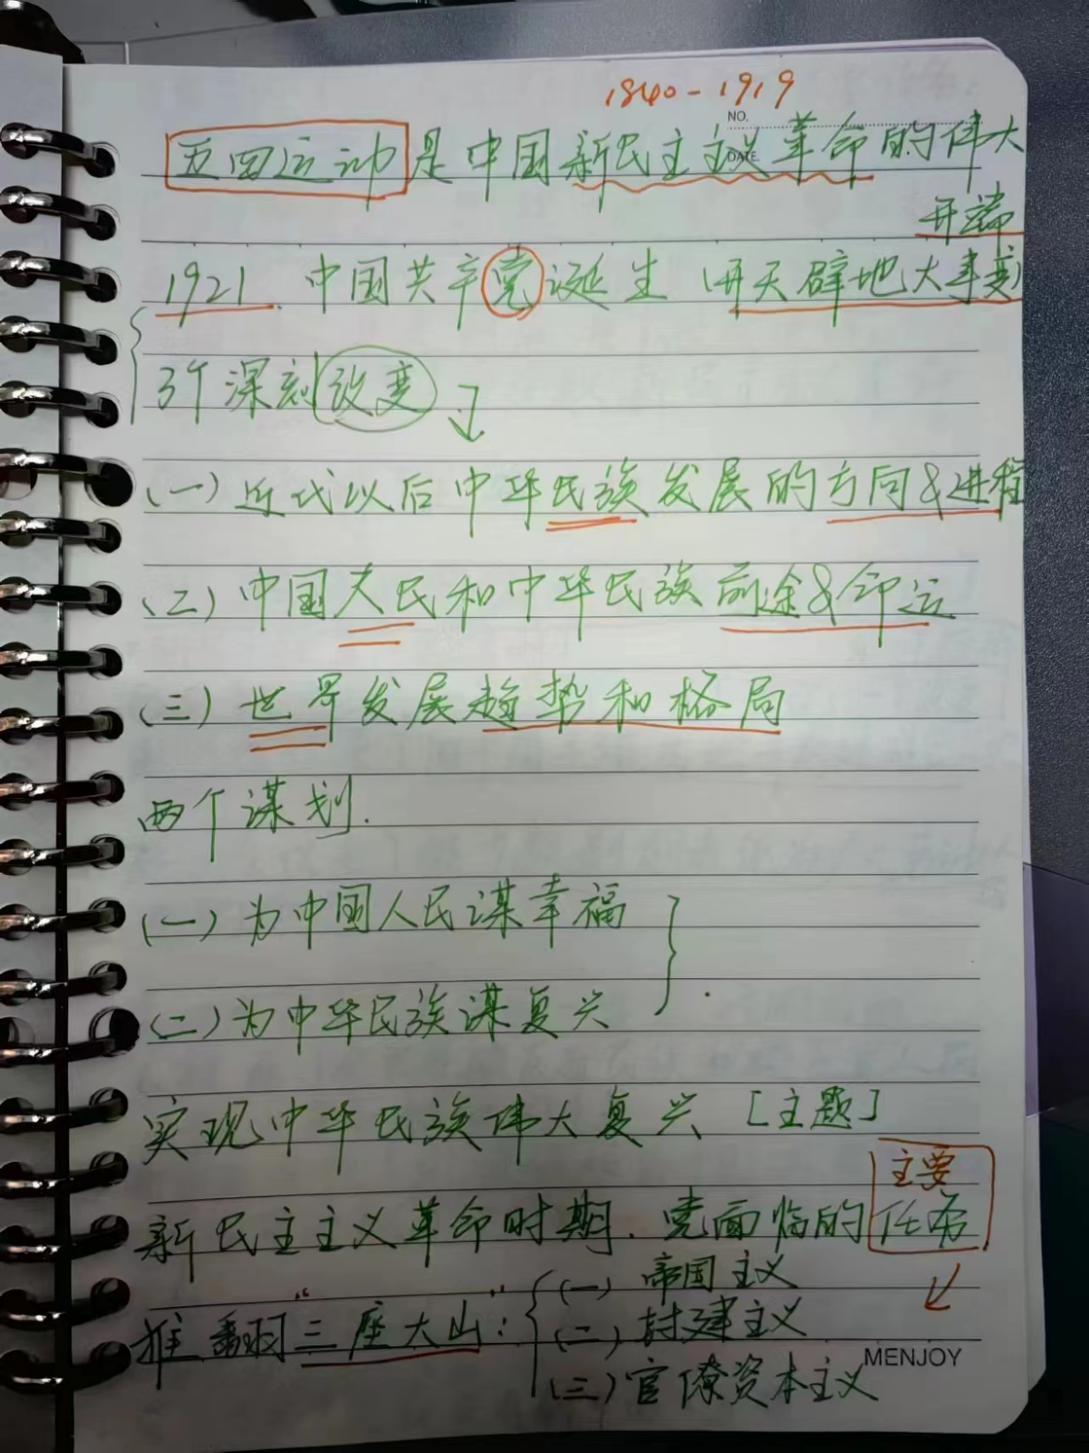 1840-1919
NO.
DATE
五四运动是中国新民主主义革命的伟大
开端
1921.中国共产党诞生(开天辟地大事变)
3个深刻改变
(一)近代以后中华民族发展的方向&进程
(二)中国人民和中华民族前途&命运
(三)世界发展趋势和格局
两个谋划.
(一)为中国人民谋幸福
(二)为中华民族谋复兴
实现中华民族伟大复兴[主题]
主要
新民主主义革命时期.党面临的任务
(一)帝国主义
推翻"三座大山":(二)封建主义
(三)官僚资本主义
MENJOY